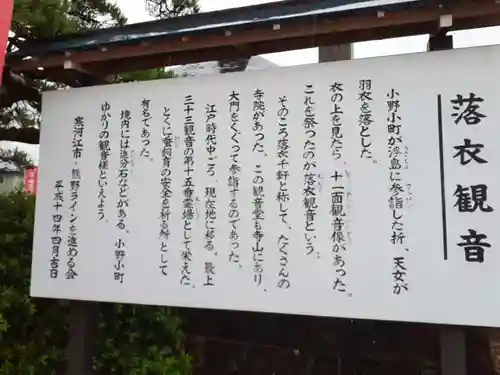 落衣観音
小野小町が浮島に参詣した折、天女が
羽衣を落とした。
衣の上を見たら、十一面観音像があった。
これを祭ったのが落衣観音という。
そのころ落衣千軒と称して、たくさんの
寺院があった。この観音堂も寺山にあり、
大門をくぐって参詣するのであった。
江戸時代中ごろ、現在地に移る。最上
三十三観音の第十五番霊場として栄えた。
とくに蚕飼育の安全を祈る所として
有名であった。
境内には追分石などがある。小野小町
ゆかりの観音様といえよう。
寒河江市・熊野ラインを進める会
平成十四年四月吉日